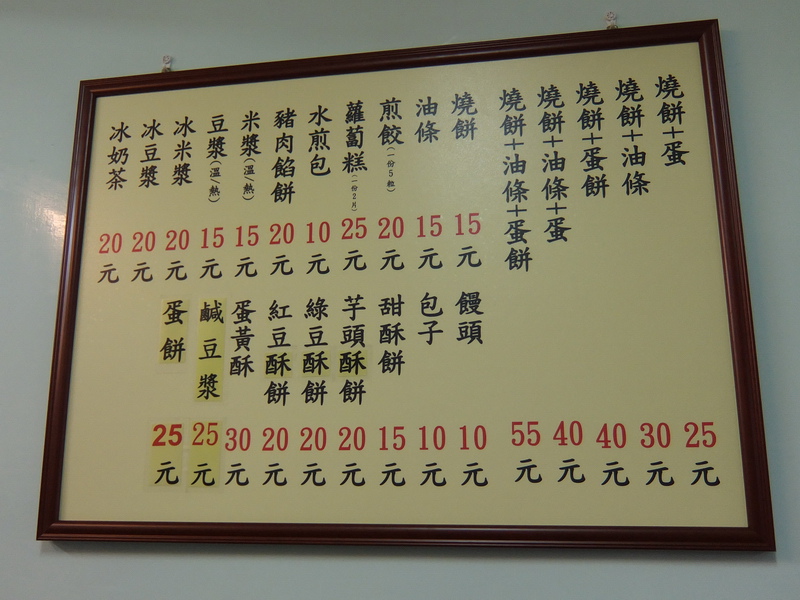 燒餅+蛋 25元
燒餅+油條 30元
燒餅+蛋餅 40元
燒餅+油條+蛋 40元
燒餅+油條+蛋餅 55元
燒餅 15元
油條 15元
煎餃(一份5粒) 20元
蘿蔔糕(一份2片) 25元
水煎包 10元
豬肉餡餅 20元
米漿(溫/熱) 15元
豆漿(溫/熱) 15元
冰米漿 20元
冰豆漿 20元
冰奶茶 20元
饅頭 10元
包子 10元
甜酥餅 15元
芋頭酥餅 20元
綠豆酥餅 20元
紅豆酥餅 20元
蛋黃酥 30元
鹹豆漿 25元
蛋餅 25元